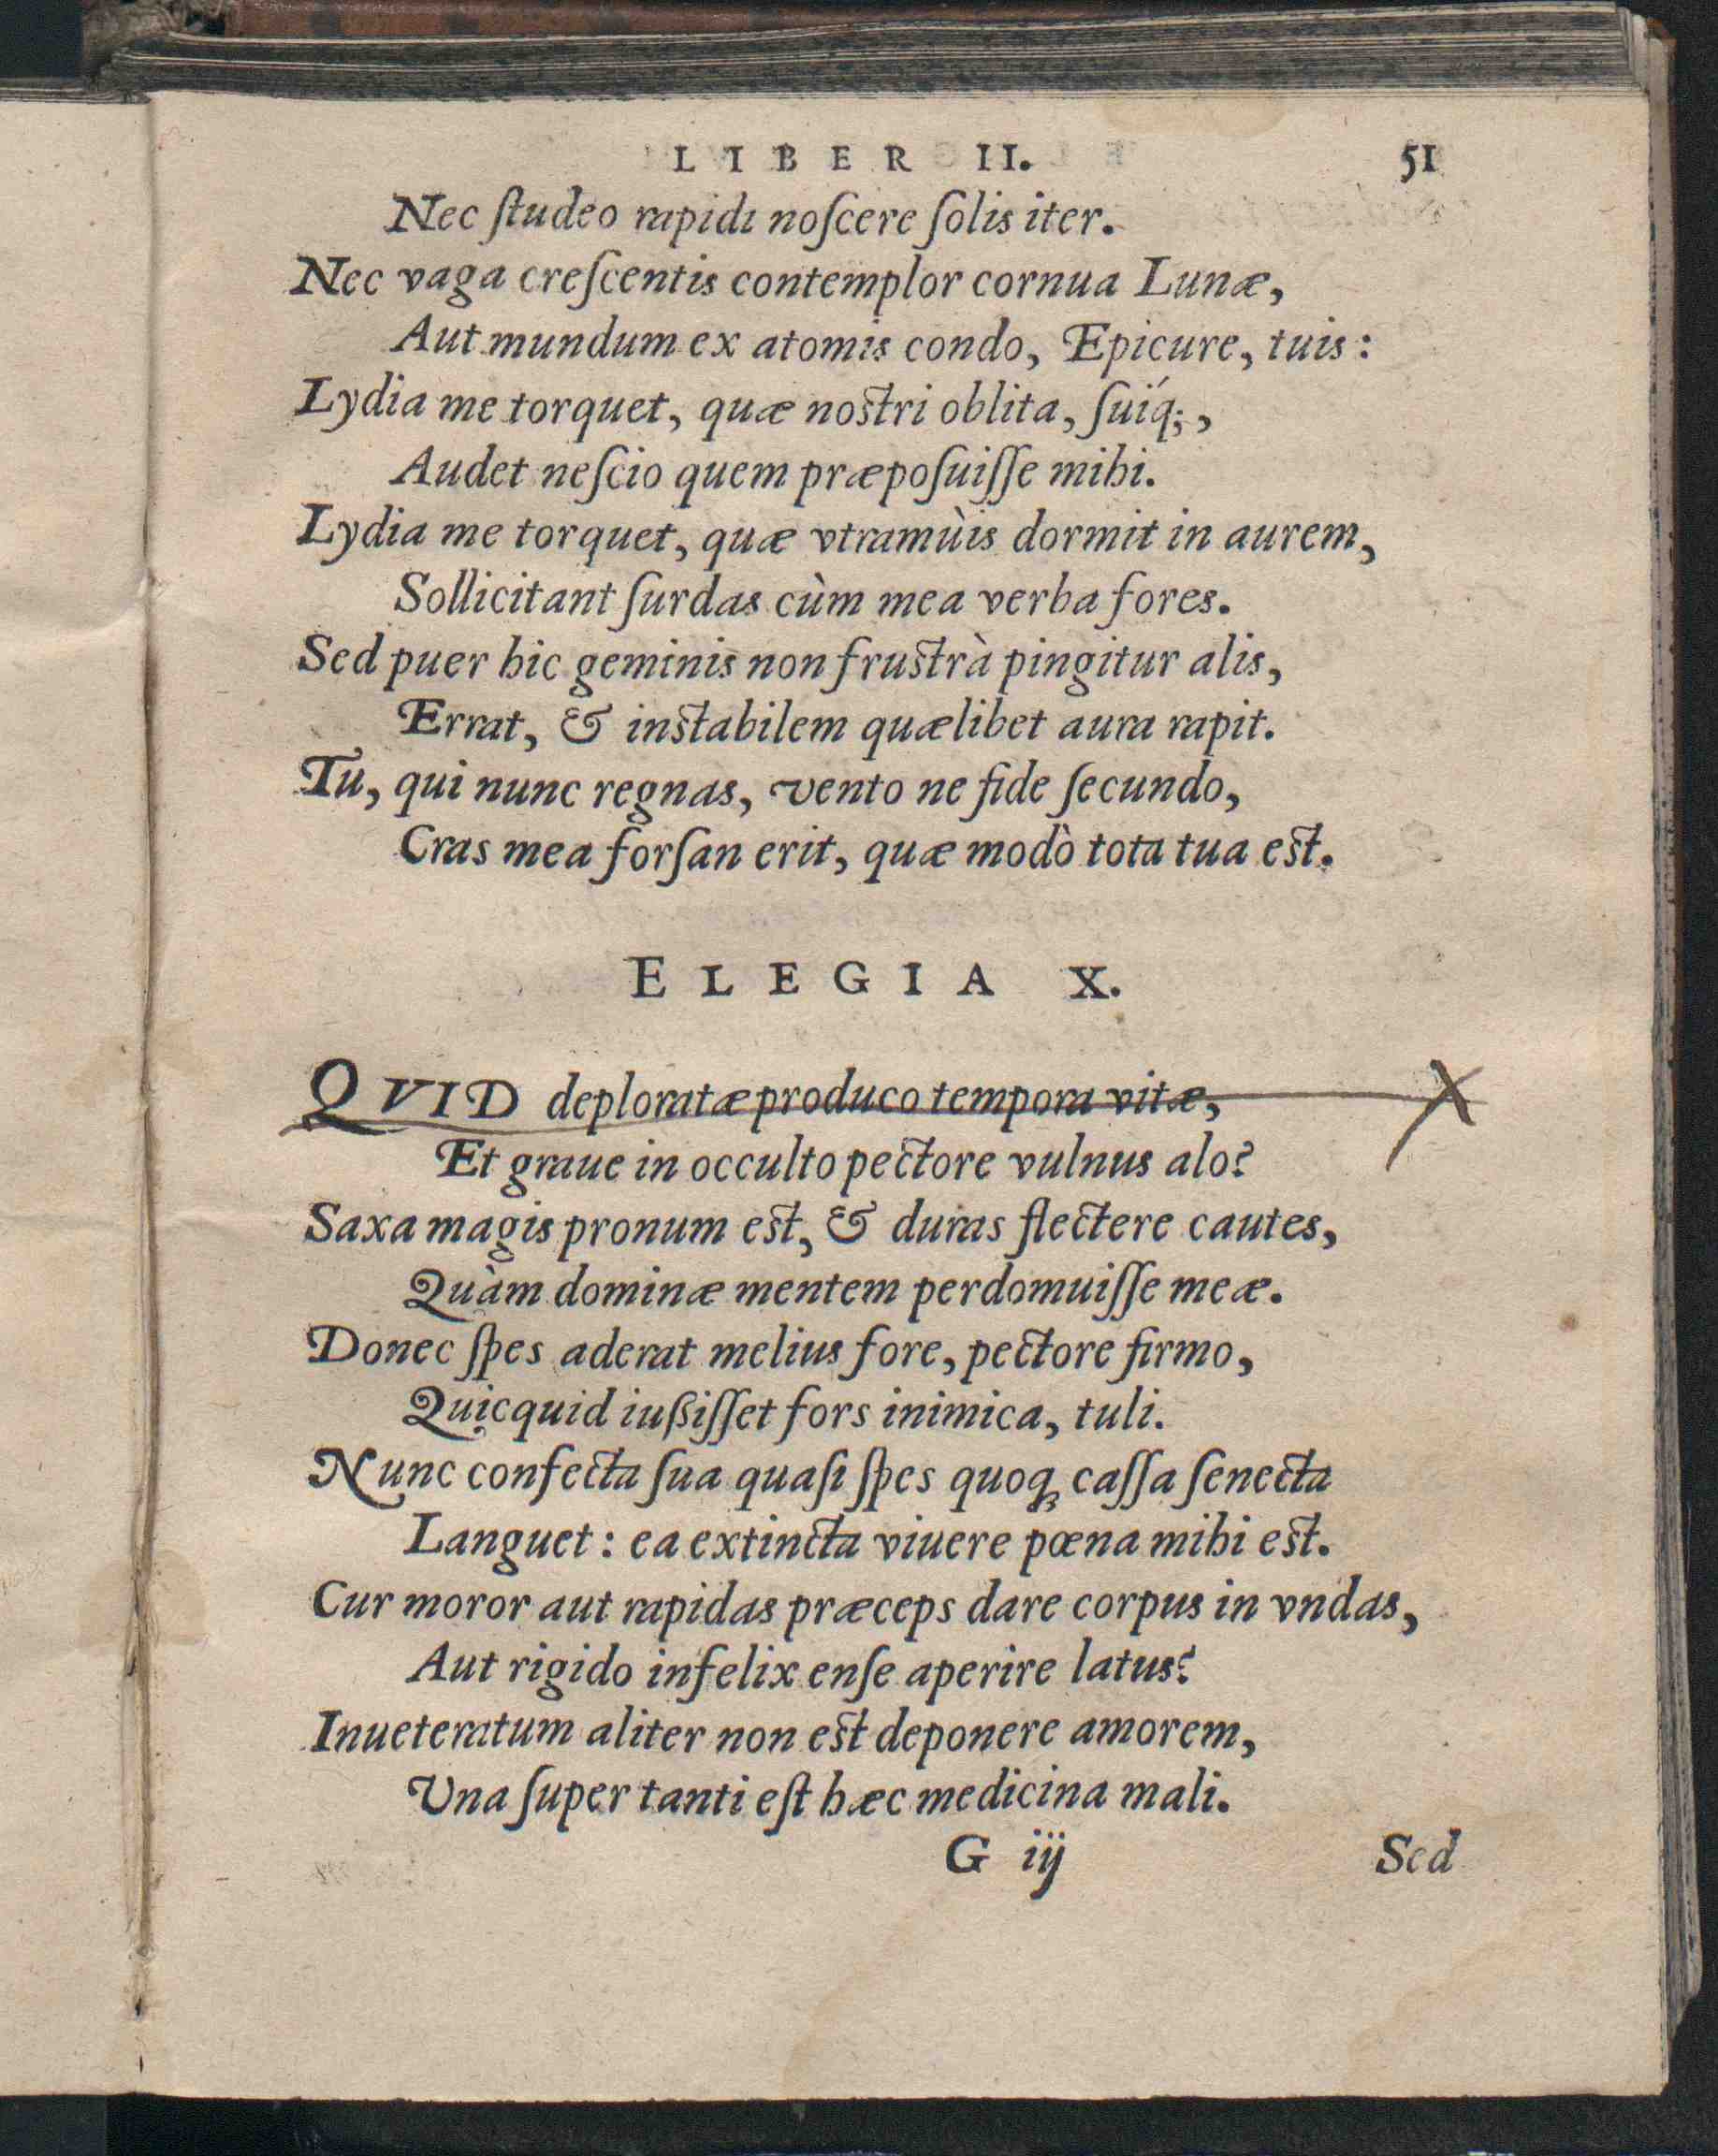 LIBER II. 51
Nec ſtudeo rapidi noſcere ſolis iter.
Nec vaga creſcentis contemplor cornua Lunæ,
Aut mundum ex atomis condo, Epicure, tuis:
Lydia me torquet, quæ noſtri oblita, ſuíq;,
Audet neſcio quem præpoſuiſſe mihi.
Lydia me torquet, quæ vtramùis dormit in aurem,
Sollicitant ſurdas cùm mea verba fores.
Sed puer hic geminis non fruſtrà pingitur alis,
Errat, & inſtabilem quælibet aura rapit.
Tu, qui nunc regnas, vento ne fide ſecundo,
Cras mea forſan erit, quæ modò tota tua eſt.
ELEGIA X.
QVID deploratæ produco tempora vitæ,
Et graue in occulto pectore vulnus alo?
Saxa magis pronum eſt, & duras flectere cautes,
Quàm dominæ mentem perdomuiſſe meæ.
Donec ſpes aderat melius fore, pectore firmo,
Quicquid iußiſſet fors inimica, tuli.
Nunc confecta ſua quaſi ſpes quoqꝫ caſſa ſenecta
Languet: ea extincta viuere pœna mihi eſt.
Cur moror aut rapidas præceps dare corpus in vndas,
Aut rigido infelix enſe aperire latus?
Inueteratum aliter non eſt deponere amorem,
Vna ſuper tanti eſt hæc medicina mali.
G iij Sed